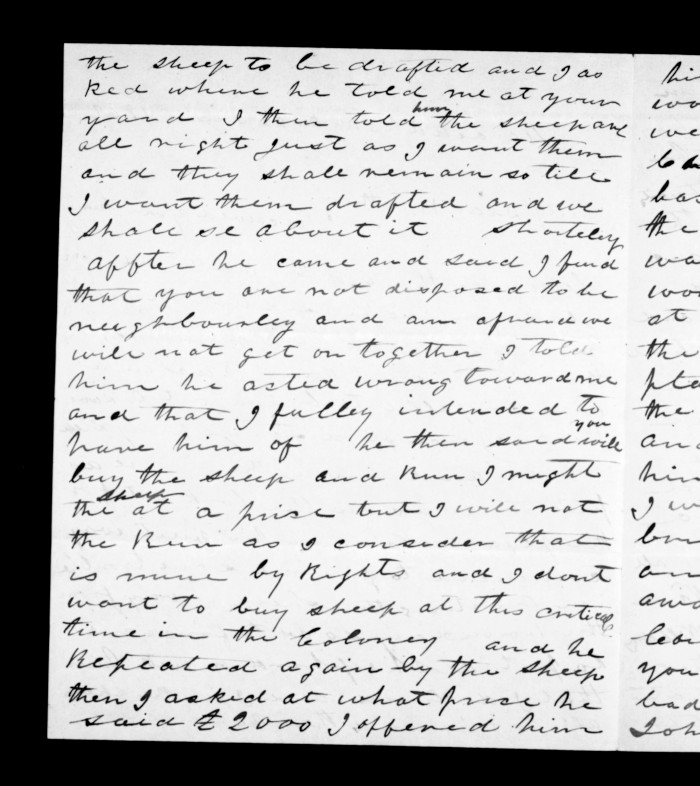 the sheep to be drafted and I as
ked where he told me at your
yard I then told him the sheep are
all right just as I want them
and they shall remain so till
I want them drafted and we
shall se about it shorteley
affter he came and said I find
that you are not disposed to be
neighbourley and am afraid we
will not get on together I told
him he acted wrong toward me
and that I fulley intended to
have him of he then said you will
buy the sheep and Run I might
the sheep at a prise but I will not
the Run as I consider that
is mine by Rights and I dont
want to buy sheep at this critical
time in the Coloney and he
Repeated again by the sheep
then I asked at what prise he
said £2000 I offered him
hi
wo
we
bas
the
wa
wo
at
the
pla
the
an
him
I w
an
awa
lea
you
bad
Joh